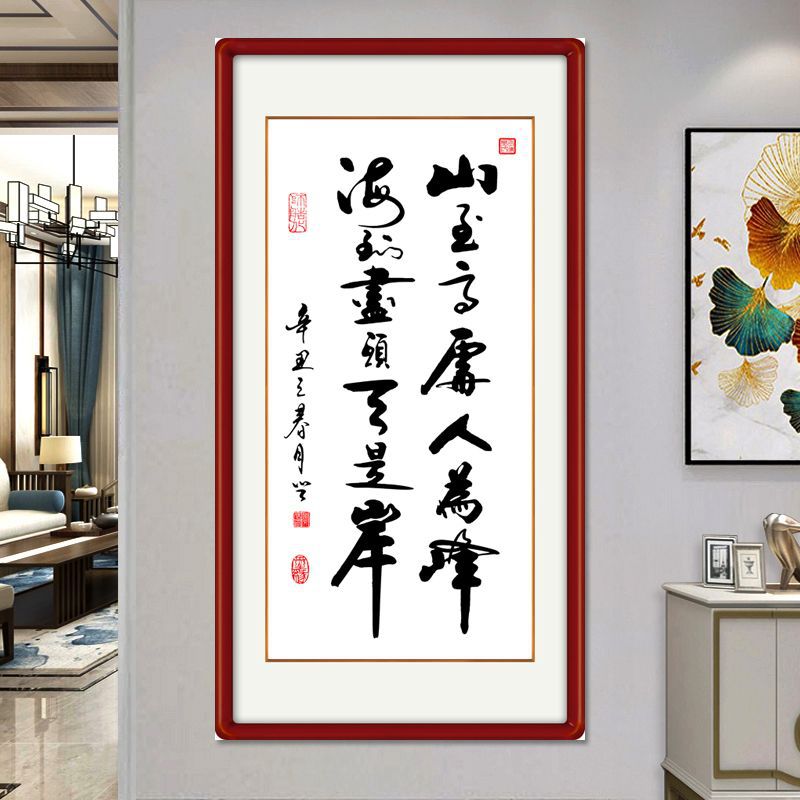 山至高處人為峰
海到盡頭天是岸
辛丑之春月